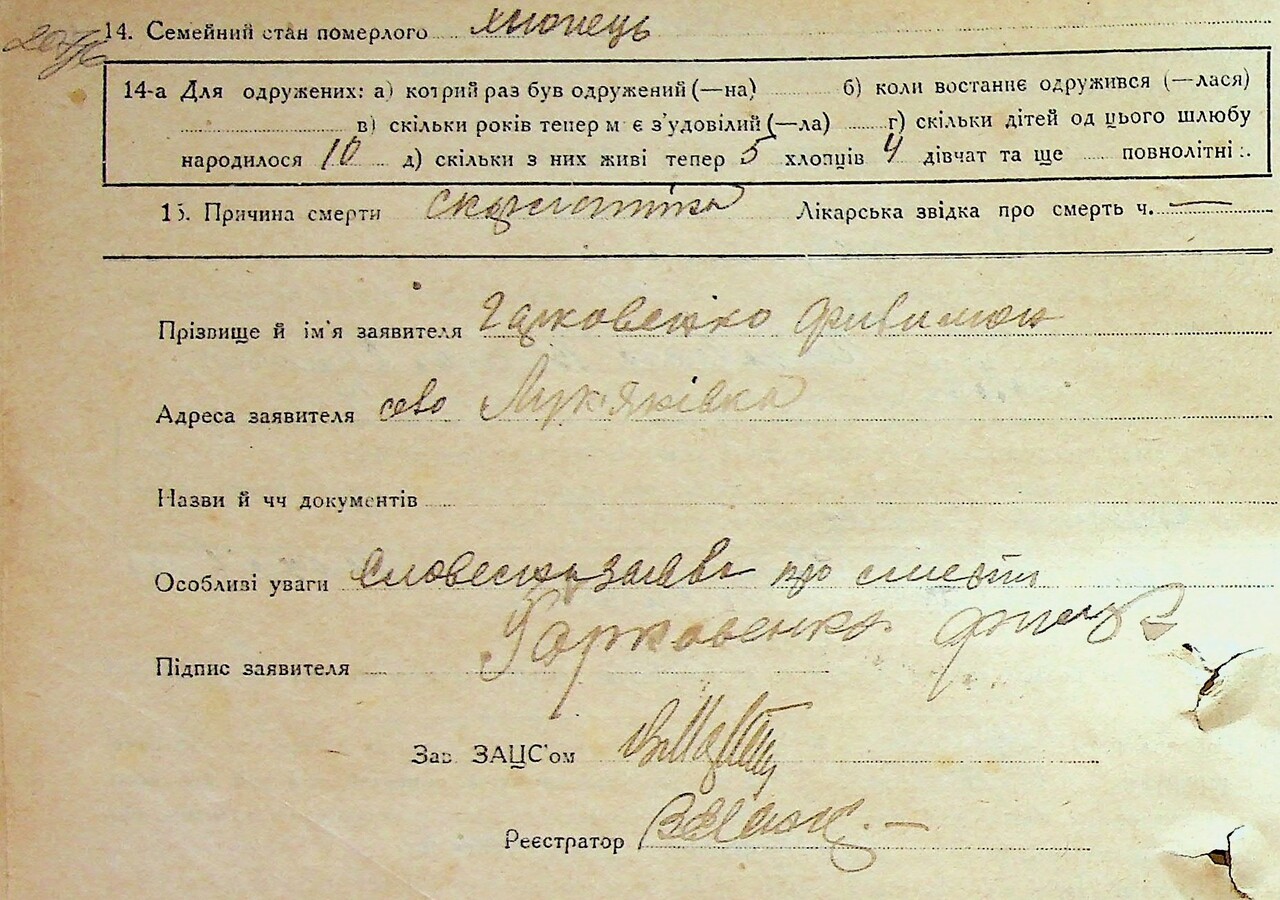 14. Семейний стан померлого хлопець
14-а Для одружених: а) котрий раз був одружений (—на) б) коли востаннє одружився (—лася)
в) скільки років тепер м є з'удовілий (—ла) г) скільки дітей од цього шлюбу
народилося 10 д) скільки з них живі тепер 5 хлопців 4 дівчат та ще повнолітні :.
15. Причина смерти скарлатина Лікарська звідка про смерть ч. —
Прізвище й ім'я заявителя Гарковенко Филимон
Адреса заявителя село Лук'янівка
Назви й чч документів
Особлизі уваги Словесна заява про смерть
Підпис заявителя Гарковенко
Зав ЗАЦС'ом
Реєстратор